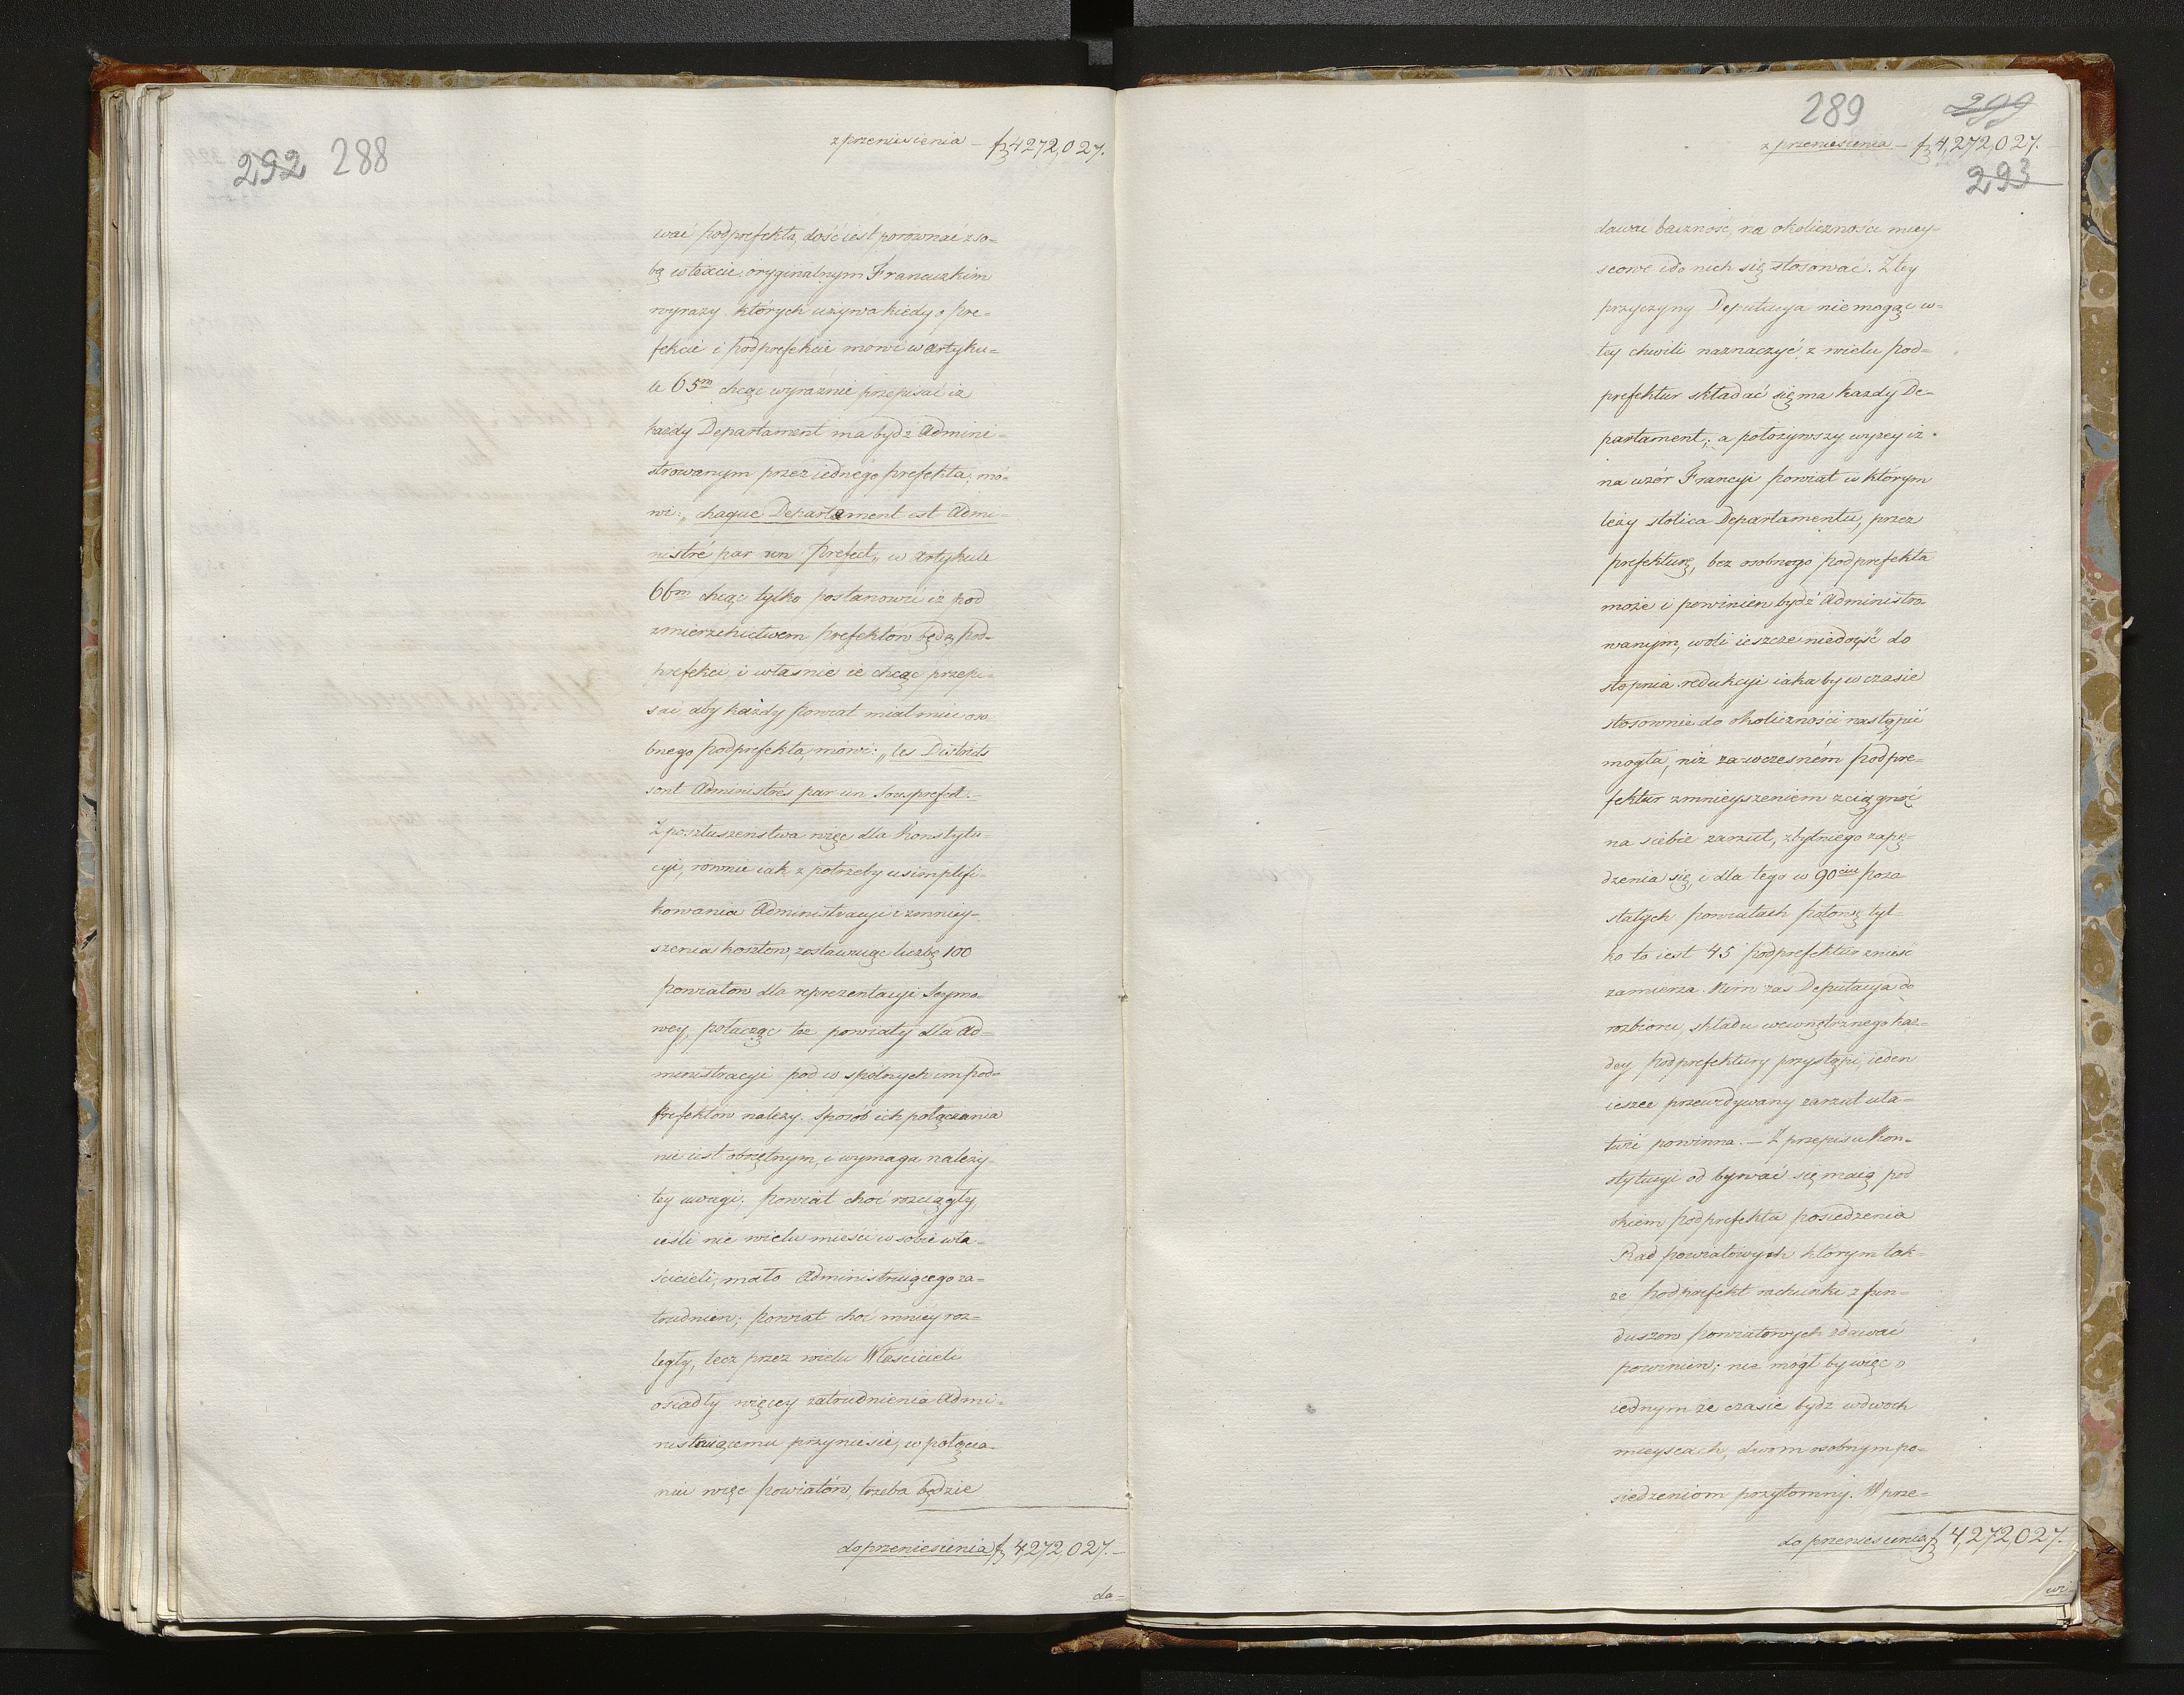 292 288
z przeniesienia — fp 4272,027.
wać podprefekta, dość iest porownać z so-
bą w texcie oryginalnym Francuzkim
wyrazy których używa kiedy o Pre-
fekcie i podprefekcie mowi w artyku-
le 65m chcąc wyraźnie przepisać iż
każdy Departament ma bydź Admini-
strowanym przez iednego prefekta; mó-
wi: „chaque Departament est Admi-
nistré par un Prefect„ w artykule
66m chcąc tylko postanowić iż pod
zwierzchictwem prefektów będą pod-
prefekci, i własnie ie chcąc przepi-
sać aby każdy powiat miał mieć oso
bnego podprefekta, mówi: „les Districts
sont Administrés par un Sousprefect.-
Z posłuszenstwa więc dla Konstytu-
cyi, rownie iak z potrzeby usimplifi-
kowania Administracyi i zmniey-
szenia kosztow, zostawuiąc liczbę 100
powiatow dla reprezentacyi Seymo-
wey, połacząc te powiaty dla Ad-
ministracyi pod w spólnych im pod-
Prefektów należy. Sposób ich połączenia
nie iest oboiętnym, i wymaga należy-
tey uwagi; powiat choć rozciągły,
ieśli nie wielu mieści w sobie wła-
ścicieli, mało Administruiącego za-
trudnien; powiat choć mniey roz-
legły, lecz przez wielu Właścicieli
osiadły więcey zatrudnienia Admi-
nistruiącemu przyniesie, w połącza-
niu więc powiatów, trzeba będzie
do przeniesienia fp 4,272,027.-
da-
289 299
z przeniesienia — fp 4,272,027.
293
dawać baczność, na okoliczności miey-
scowe i do nich się stosować. Z tey
przyczyny Deputacya nie mogąc w-
tey chwili naznaczyć, z wielu pod-
prefektur składać się ma każdy De-
partament; a położywszy wyżey iż
na wzór Francyi powiat w którym
leży stolica Departamentu, przez
prefekturę, bez osobnego podprefekta
może i powinien bydź Administro-
wanym, woli ieszcze niedoyść do
stopnia redukcyi iaka by w czasie
stosownie do okoliczności nastąpić
mogła, niż za wczesném podpre-
fektur zmnieyszeniem zciągnąć
na siebie zarzut, zbytniego zapę-
dzenia się, i dla tego w 90ciu poza
stałych powiatach połowę tyl-
ko to iest 45 podprefektur znieść
zamierza. Nim zas Deputacya do
rozbioru, składu wewnętrznego każ-
dey podprefektury przystąpi, ieden
ieszce przewidywany zarzut uła-
twić powinna. — Z przepisu Kon-
stytucyi od bywać się maią pod
okiem podprefekta posiedzenia
Rad powiatowych którym tak-
że podprefekt rachunki z fun-
duszow powiatowych zdawać
powinien; nie mógł by więc o
iednym że czasie bydz w dwoch
mieyscach, dwom osobnym po-
siedzeniom przytomny. W prze-
do przeniesienia fp 4,272,027.
wi-